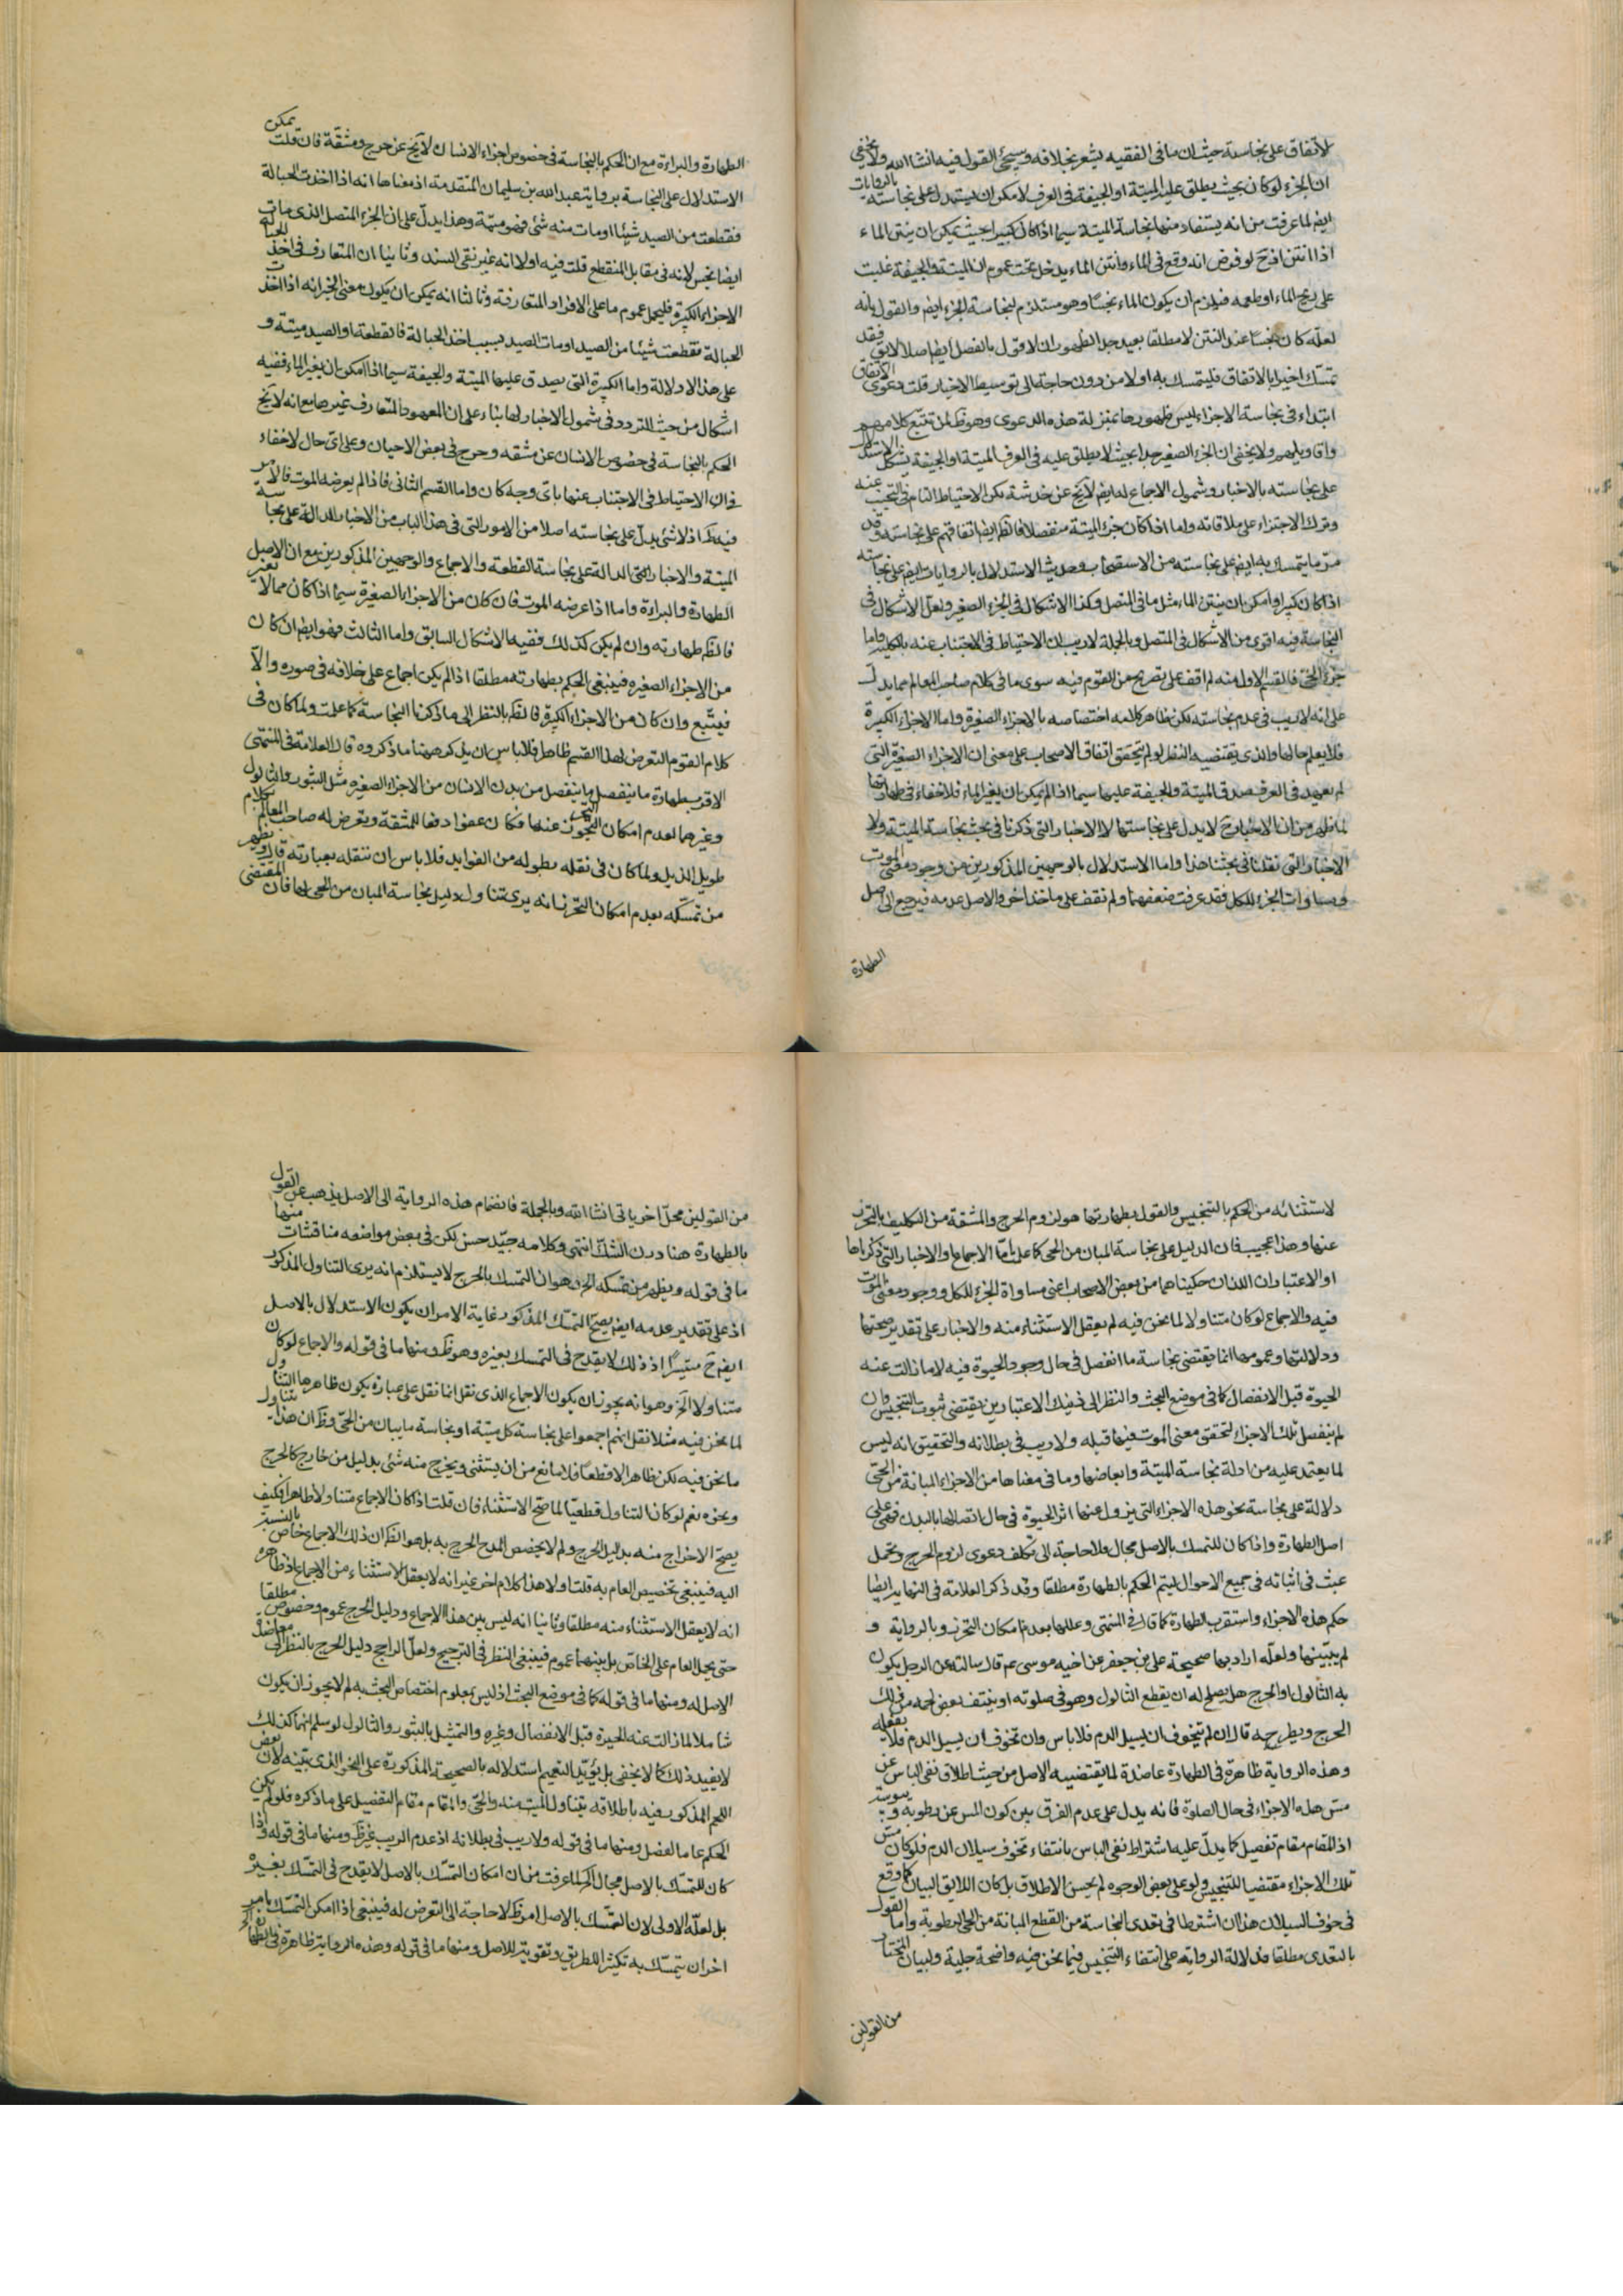 لاتفاق على نجاسته حيث ان ما في الفقيه يشعر بخلافه وسيجئ القول فيه انشا الله ولا يخفى
ان الجزء لو كان بحيث يطلق عليه الميتة او الجيفة في العرف لامكن ان يستدل على نجاسته بالروايات
ايض لما عرفت من انه يستفاد منها نجاسة الميتة سيما اذا كان كبيرا بحيث يمكن ان ينتن الماء
اذا انتن اذ ح لو فرض انه وقع في الماء وأنتن الماء يدخل تحت عموم ان الميتة والجيفة غلبت
على ريح الماء او طعمه فيلزم ان يكون الماء نجسا وهو مستلزم لنجاسة الجزء ايض والقول بانه
لعله كان نجسا عند النتن لا مطلقا بعيد جدا لظهور ان لا قول بالفصل ايض اصلا لايق فقد
تمسك اخيرا بالاتفاق فليتمسك به اولا من دون حاجة الى توسيط الاخبار قلت دعوى الاتفاق
ابتداء في نجاسة الاجزاء ليس ظهورها بمنزلة هذه الدعوى وهو ظ لمن تتبع كلامهم
واقاويلهم ولا يخفى ان الجزء الصغير جدا بحيث لا يطلق عليه في العرف الميتة او الجيفة يشكل الاستدلال
على نجاسته بالاخبار وشمول الاجماع له ايض لا يخ عن خدشة لكن الاحتياط التام في التجنب عنه
وترك الاجتزاء على ملاقاته واما اذا كان جزء الميتة منفصلا فالظ ايض اتفاقهم على نجاسته وقد
مر ما يتمسك به ايض على نجاسته من الاستصحاب وحديث الاستدلال بالروايات ايض على نجاسته
اذا كان كبيرا وامكن ان ينتن الماء مثل ما في المتصل وكذا الاشكال في الجزء الصغير ولعل الاشكال في
النجاسة فيه اقوى من الاشكال في المتصل وبالجملة لا ريب ان الاحتياط في الاجتناب عنه بالكلية واما
جزء الحي فالقسم الاول منه لم اقف على تصريح من القوم فيه سوى ما في كلام صاحب المعالم مما يدل
على انه لا ريب في عدم نجاسته لكن ظاهر كلامه اختصاصه بالاجزاء الصغيرة واما الاجزاء الكبيرة
فلا يعلم حالها والذي يقتضيه النظر لو لم يتحقق اتفاق الاصحاب على معنى ان الاجزاء الصغيرة التي
لم يعهد في العرف صدق الميتة والجيفة عليها سيما اذا لم يمكن ان يغير الماء فلا خفاء في طهارتها
لما ظهر من ان الاخبار ح لا يدل على نجاستها لا الاخبار التي ذكرنا في بحث نجاسة الميتة ولا
الاخبار التي نقلنا في بحثنا هذا واما الاستدلال بالوجهين المذكورين من وجود معنى الموت
ومساوات الجزء للكل فقد عرفت ضعفهما ولم نقف على ماخذ اخر والاصل عدمه فيرجع الى اصل
الطهارة
الطهارة والبراءة مع ان الحكم بالنجاسة في خصوص اجزاء الانسان لا يخ عن حرج ومشقة فان قلت يمكن
الاستدلال على النجاسة برواية عبد الله بن سليمان المتقدمة اذ معناها انه اذا اخذت الحبالة
فقطعت من الصيد شيئا او مات منه شئ فهو ميتة وهذا يدل على ان الجزء المتصل الذي مات
ايضا نجس لانه في مقابل المنقطع قلت فيه اولا انه غير نقي السند وثانيا ان المتعارف في اخذ الحبالة
الاجزاء الكبيرة فليحمل عموم ما على الافراد المتعارفة وثالثا انه يمكن ان يكون معنى الخبر انه اذا اخذت
الحبالة فقطعت شيئا من الصيد او مات الصيد بسبب اخذ الحبالة فالقطعة او الصيد ميتة و
على هذا لا دلالة واما الكبيرة التي يصدق عليها الميتة والجيفة سيما اذا امكن ان يغير الماء ففيه
اشكال من حيث التردد في شمول الاخبار لها بناء على ان المعهود المتعارف غيرها مع انه لا يخ
الحكم بالنجاسة في خصوص الانسان عن مشقه وحرج في بعض الاحيان وعلى اي حال لا خفاء
في ان الاحتياط في الاجتناب عنها باي وجه كان واما القسم الثاني فاذا لم يعرضه الموت فالامر
فيه ظ اذ لا شئ يدل على نجاسته اصلا من الامور التي في هذا الباب من الاخبار الدالة على نجاسة
الميتة والاخبار التي الدالة على نجاسة القطعة والاجماع والوجهين المذكورين مع ان الاصل
الطهارة والبراءة واما اذا عرضه الموت فان كان من الاجزاء الصغيرة سيما اذا كان مما لا يغير
فالظ طهارته وان لم يكن كذلك ففيه الاشكال السابق واما الثالث فهو ايض ان كان
من الاجزاء الصغيره فينبغي الحكم بطهارته مطلقا اذ لم يكن اجماع على خلافه في صوره والا
فيتبع وان كان من الاجزاء الكبيرة فالحكم بالنظر الى ما ذكرنا النجاسة كما علمت ولما كان في
كلام القوم التعرض لهذا القسم ظاهرا فلا باس ان يذكر ههنا ما ذكروه قال العلامة في المنتهى
الاقرب طهارة ما ينفصل من بدن الانسان من الاجزاء الصغيره مثل البثور والثالول
وغيرهما لعدم امكان التحرز عنها فكان عفوا دفعا للمشقة ويعرض له صاحب المعالم بكلام
طويل الذيل ولما كان في نقله بطوله من الفوايد فلا باس ان ننقله بعبارته قال ويظهر
من تمسكه بعدم امكان التحرز انه يرى تناول دليل نجاسة المبان من الحي لها فان المقتضى
لاستثنائه من الحكم بالتنجيس والقول بطهارتها هو لزوم الحرج والمشقة من التكليف بالتحرز
عنها وهذا عجيب فان الدليل على نجاسة المبان من الحي كما علمت اما الاجماع او الاخبار التي ذكرناها
او الاعتباران اللذان حكيناهما من بعض الاصحاب اعني مساواة الجزء للكل ووجود معنى الموت
فيه والاجماع لو كان متناولا لما نحن فيه لم يعقل الاستثناء منه والاخبار على تقدير صحتها
ودلالتها وعمومها انما يقتضي نجاسة ما انفصل في حال وجود الحيوة فيه لا ما زالت عنه
الحيوة قبل الانفصال كما في موضع البحث والنظر الى ذينك الاعتبارين يقتضي ثبوت التنجيس وان
لم ينفصل تلك الاجزاء لتحقق معنى الموت فيها قبله ولا ريب في بطلانه والتحقيق انه ليس
لما يعتمد عليه من ادلة نجاسة الميتة وابعاضها وما في معناها من الاجزاء المبانة من الحي
دلالة على نجاسة نحو هذه الاجزاء التي يزول عنها اثر الحيوة في حال اتصالها بالبدن فهي على
اصل الطهارة واذا كان للتمسك بالاصل مجال فلا حاجة الى تكلف دعوى لزوم الحرج وتحمل
عبث في اثباته في جميع الاحوال ليتم الحكم بالطهارة مطلقا وقد ذكر العلامة في النهاية ايضا
حكم هذه الاجزاء واستقرب الطهارة كما قال في المنتهى وعللها بعدم امكان التحرز وبالرواية و
لم يبينها ولعله اراد بها صحيحة على بن جعفر عن اخيه موسى عم قال سالته عن الرجل يكون
به الثالول او الجرح هل يصلح له ان يقطع الثالول وهو في صلوته او ينتف بعض لحمه من ذلك
الجرح ويطرحه قال ان لم يتخوف ان يسيل الدم فلا باس وان تخوف ان يسيل الدم فلا يفعله
وهذه الرواية ظاهرة في الطهارة عاضدة لما يقتضيه الاصل من حيث اطلاق نفي الباس عن
مس هذه الاجزاء في حال الصلوة فانه يدل على عدم الفرق بين كون المس عن رطوبة ويبوسة
اذ المقام مقام تفصيل كما يدل عليه اشتراط نفي الباس بانتفاء تخوف سيلان الدم فلو كان مس
تلك الاجزاء مقتضيا للتنجيس ولو على بعض الوجوه لم يحسن الاطلاق بل كان اللائق البيان كما وقع
في خوف السيلان هذا ان اشترطنا في تعدى النجاسة من القطع المبانة من الحي الرطوبة واما القول
بالتعدى مطلقا فدلالة الرواية على انتفاء التنجيس فيما نحن فيه واضحة جلية ولبيان المختار
من القولين
من القولين محل اخر ياتى انشا الله وبالجملة فانضمام هذه الرواية الى الاصل يذهب عن القول
بالطهارة هنا درن الشك انتهى وكلامه جيد حسن لكن في بعض مواضعه مناقشات منها
ما في قوله ويظهر من تمسكه الخ وهو ان التمسك بالحرج لا يستلزم انه يرى التناول المذكور
اذ على تقدير عدمه ايض يصح التمسك المذكور غاية الامر ان يكون الاستدلال بالاصل
ايض ح متيسرا اذ ذلك لا يقدح في التمسك بغيره وهو ظ ومنها ما في قوله والاجماع لو كان
متناولا الخ وهو انه يجوز ان يكون الاجماع الذي نقل انما نقل على عبارة يكون ظاهرها التناول
لما نحن فيه مثلا نقل انهم اجمعوا على نجاسة كل ميتة او نجاسة ما يبان من الحي وظ ان هذا يتناول
ما نحن فيه لكن ظاهرا لا قطعا فلا مانع من ان يستثنى ويخرج منه شئ بدليل من خارج كالحرج
ونحوه نعم لو كان التناول قطعيا لما صح الاستثناء فان قلت اذا كان الاجماع متناولا ظاهرا فكيف
يصح الاخراج منه بدليل الحرج ولم لا يخصص الحرج به بل هو الظ لان ذلك الاجماع خاص بالنسبة
اليه فينبغي تخصيص العام به قلت اولا هذا كلام اخر غير انه لا يعقل الاستثناء من الاجماع اذ ظاهره
انه لا يعقل الاستثناء منه مطلقا وثانيا انه ليس بين هذا الاجماع ودليل الحرج عموم وخصوص مطلقا
حتى يحمل العام على الخاص بل بينهما عموم فينبغي النظر في الترجيح ولعل الراجح دليل الحرج بالنظر الى معاضدة
الاصل له ومنها ما في قوله كما في موضع البحث اذ ليس بمعلوم اختصاص البحث به لم لا يجوز ان يكون
شاملا لما زالت عنه الحيوة قبل الانفصال وغيره والتمثيل بالبثور والثالول لو سلم انهما كذلك
لا يفيد ذلك كما لا يخفى بل يؤيد التعميم استدلاله بالصحيحة المذكورة على النحو الذي بينه لان بعض
اللحم المذكور فيه باطلاقه يتناول الميت منه والحي والمقام مقام التفصيل على ما ذكره فلو لم يكن
الحكم عاما لفصل ومنها ما في قوله ولا ريب في بطلانه اذ عدم الريب غير ظ ومنها ما في قوله واذا
كان للتمسك بالاصل مجال الخ لما عرفت من ان امكان التمسك بالاصل لا يقدح في التمسك بغيره
بل لعله الاولى لان التمسك بالاصل امر ظ لا حاجة الى التعرض له فينبغي اذا امكن التمسك بامر
اخر ان يتمسك به تكثيرا للطريق وتقوية للاصل ومنها ما في قوله وهذه الرواية ظاهرة في الطهارة